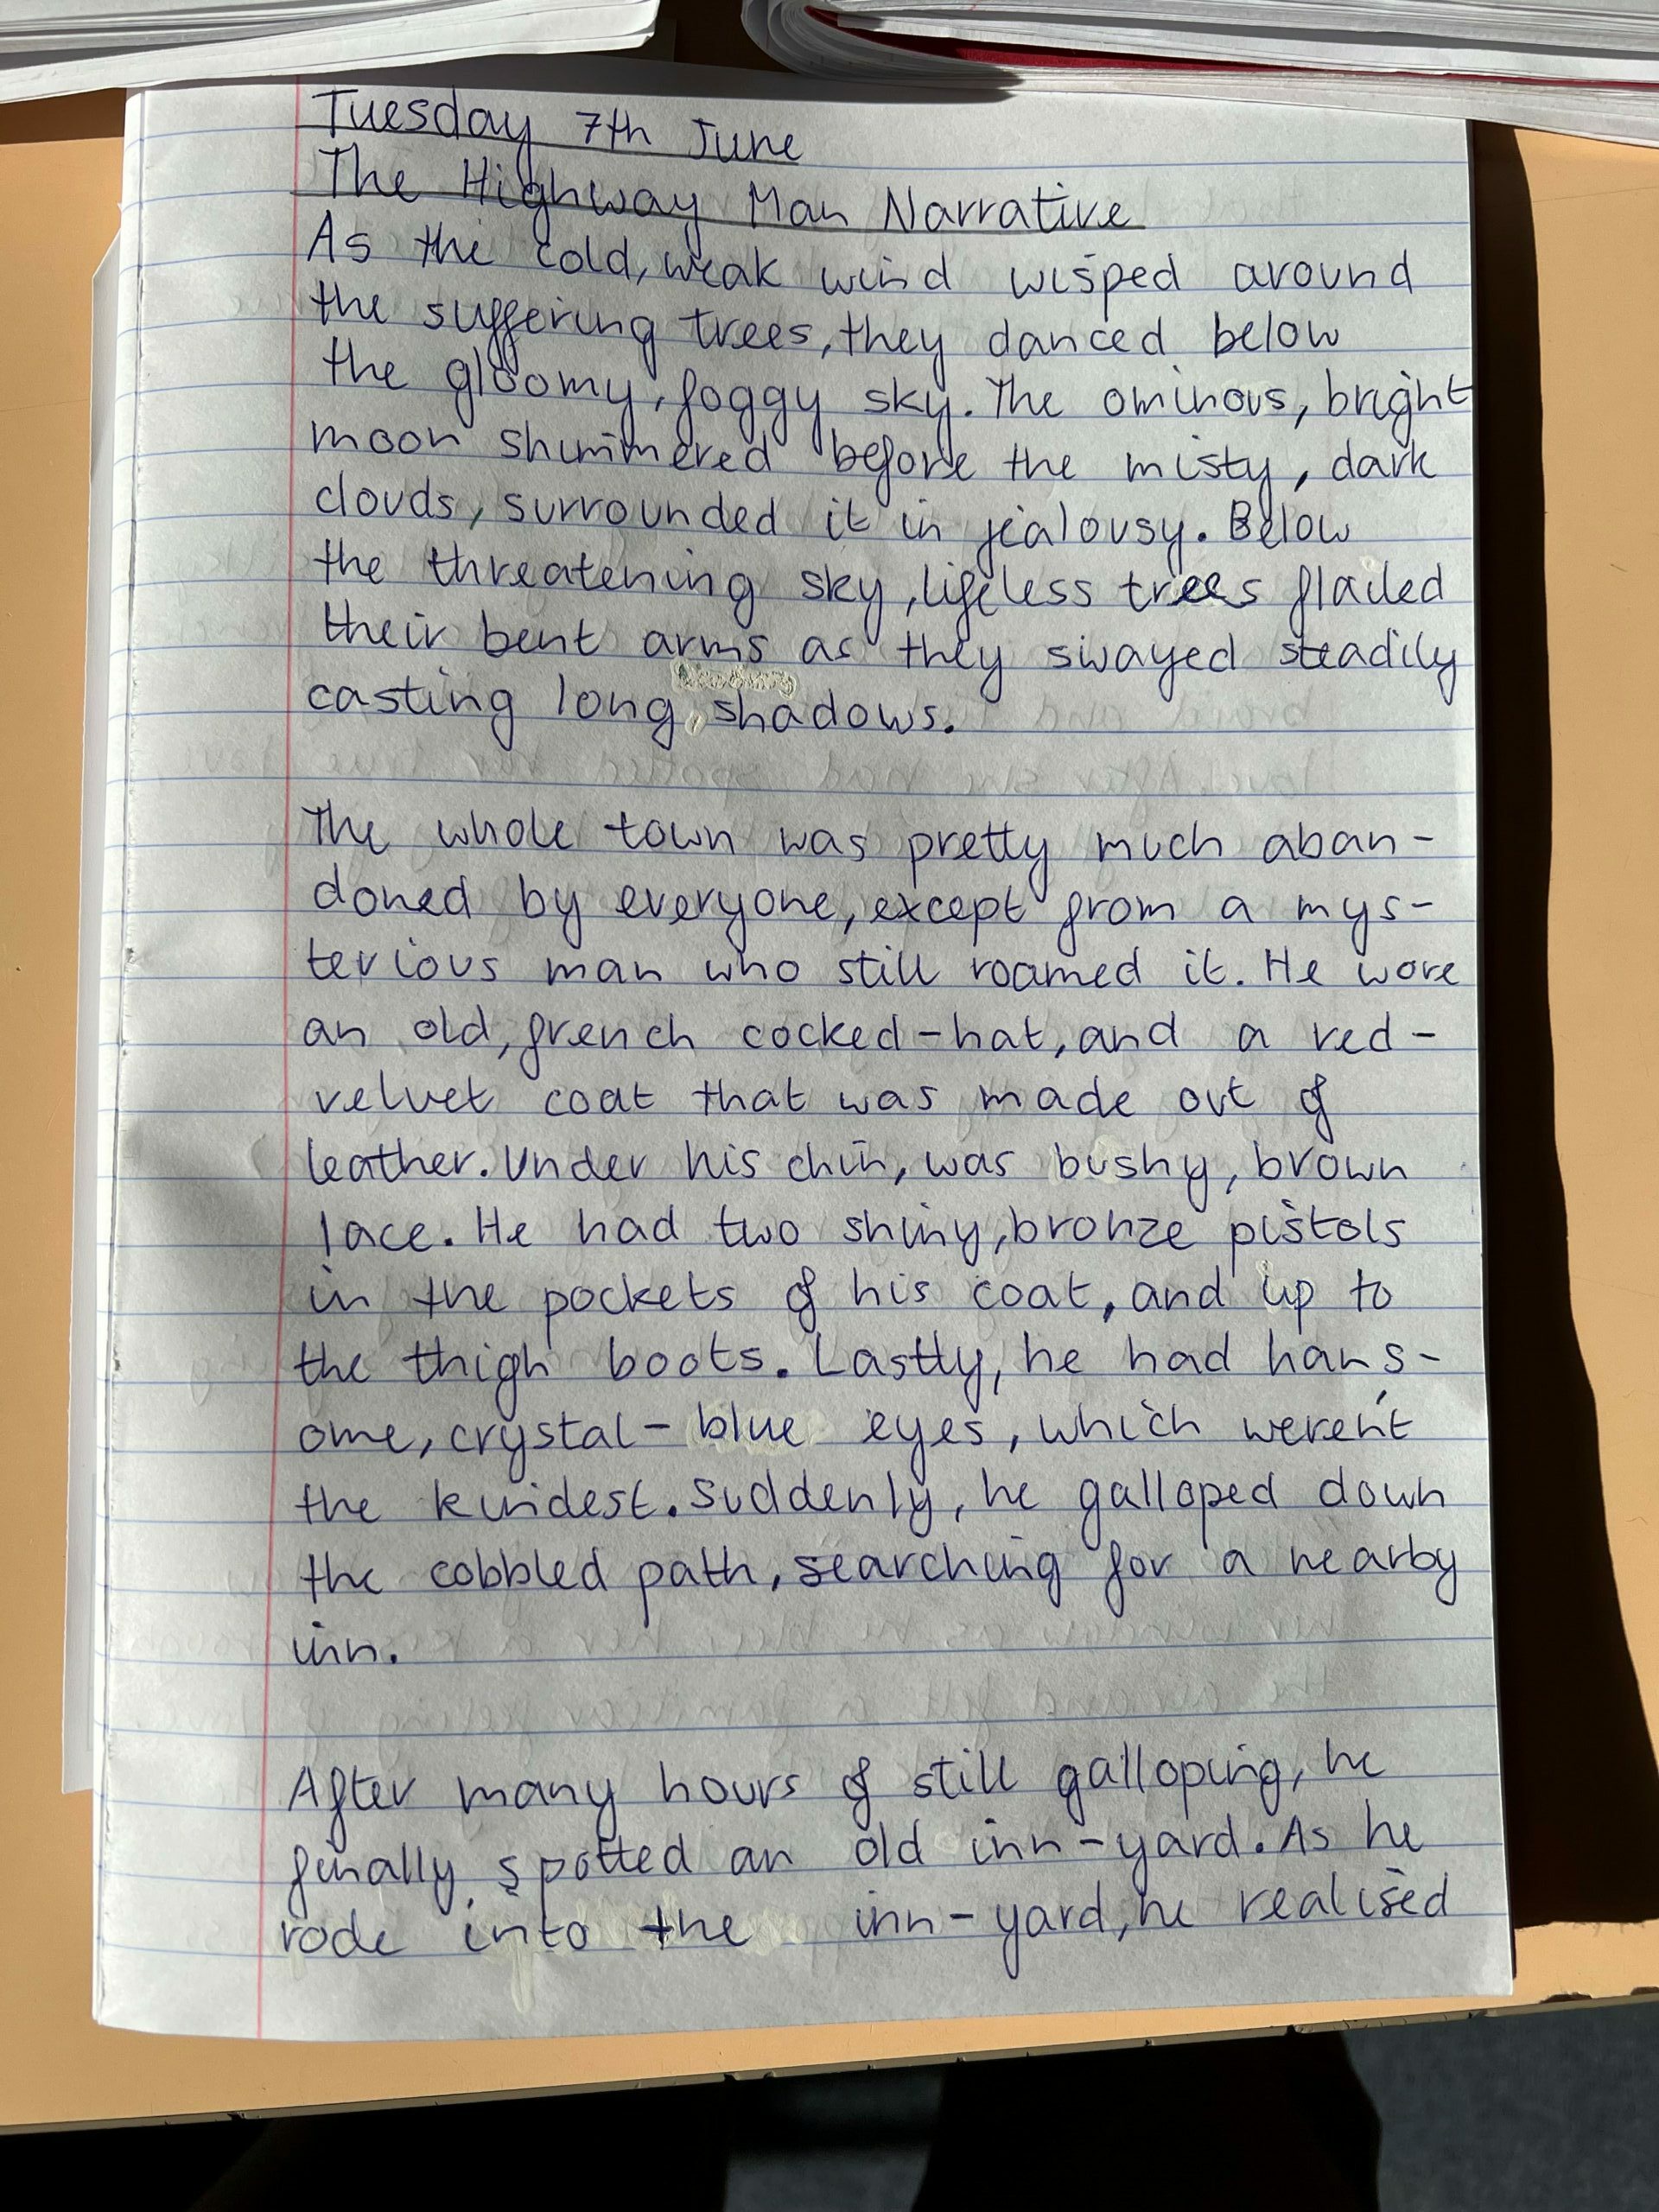 Tuesday 7th June
The Highway Man Narrative
As the cold, weak wind wisped around
the suffering trees, they danced below
the gloomy, foggy sky. The ominous, bright
moon shimmered before the misty, dark
clouds, surrounded it in jealousy. Below
the threatening sky, lifeless trees flailed
their bent arms as they swayed steadily
casting long, shadows.
The whole town was pretty much aban-
doned by everyone, except from a mys-
terious man who still roamed it. He wore
an old, french cocked-hat, and a red-
velvet coat that was made out of
leather. Under his chin, was bushy, brown
lace. He had two shiny, bronze pistols
in the pockets of his coat, and up to
the thigh boots. Lastly, he had hans-
ome, crystal-blue eyes, which weren't
the kindest. Suddenly, he galloped down
the cobbled path, searching for a nearby
inn.
After many hours of still galloping, he
finally spotted an old inn-yard. As he
rode into the inn-yard, he realised